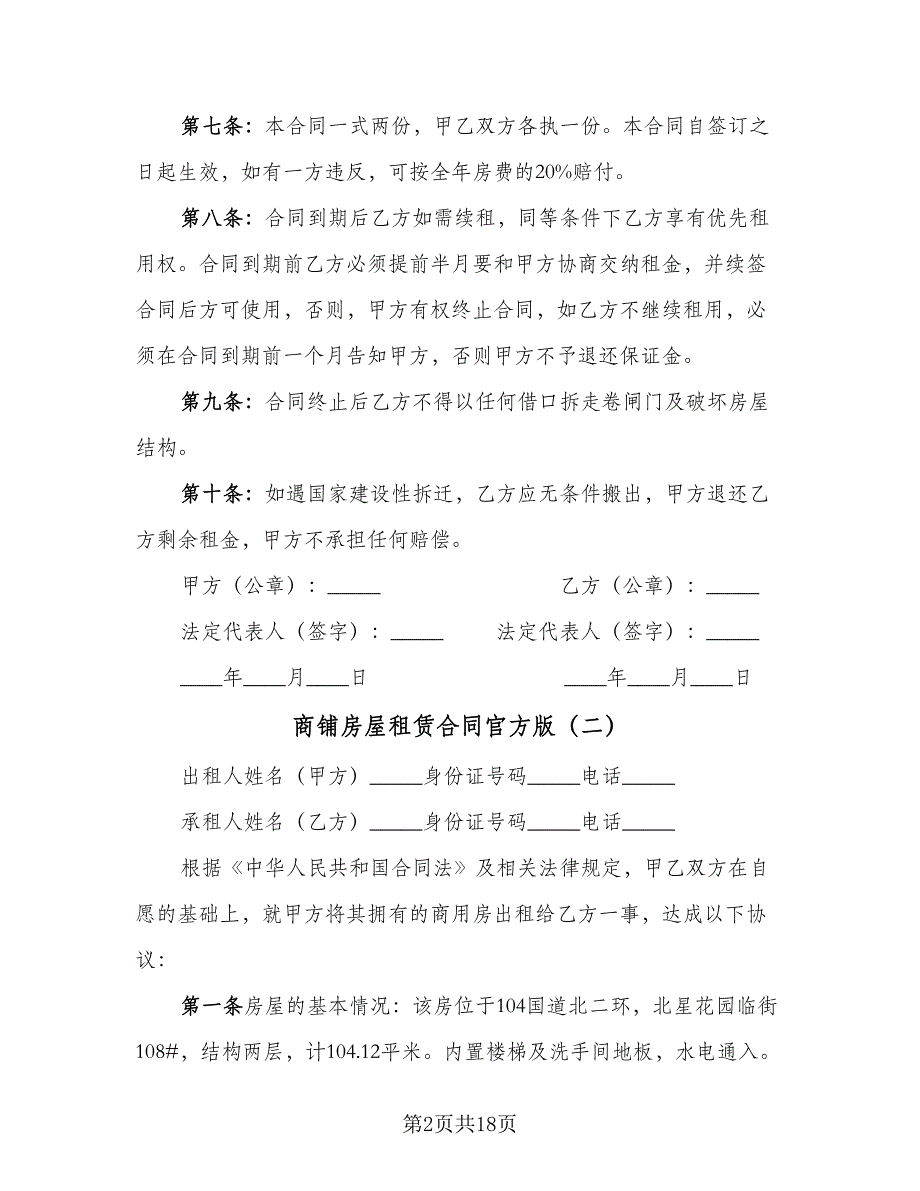 第七条：本合同一式两份，甲乙双方各执一份。本合同自签订之
日起生效，如有一方违反，可按全年房费的20%赔付。
第八条：合同到期后乙方如需续租，同等条件下乙方享有优先租
用权。合同到期前乙方必须提前半月要和甲方协商交纳租金，并续签
合同后方可使用，否则，甲方有权终止合同，如乙方不继续租用，必
须在合同到期前一个月告知甲方，否则甲方不予退还保证金。
第九条：合同终止后乙方不得以任何借口拆走卷闸门及破坏房屋
结构。
第十条：如遇国家建设性拆迁，乙方应无条件搬出，甲方退还乙
方剩余租金，甲方不承担任何赔偿。
甲方（公章）：_____ 乙方（公章）：_____
法定代表人（签字）：_____ 法定代表人（签字）：_____
____年____月____日 ____年____月____日
商铺房屋租赁合同官方版（二）
出租人姓名（甲方）_____身份证号码_____电话_____
承租人姓名（乙方）_____身份证号码_____电话_____
根据《中华人民共和国合同法》及相关法律规定，甲乙双方在自
愿的基础上，就甲方将其拥有的商用房出租给乙方一事，达成以下协
议：
第一条房屋的基本情况：该房位于104国道北二环，北星花园临街
108#，结构两层，计104.12平米。内置楼梯及洗手间地板，水电通入。
第2页共18页